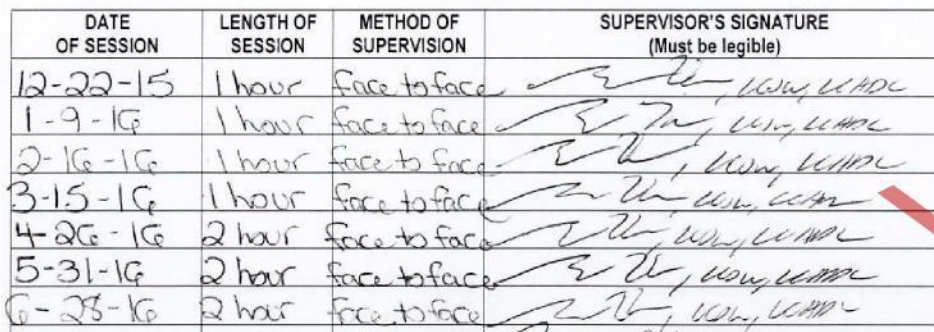 DATE OF SESSION LENGTH OF SESSION METHOD OF SUPERVISION SUPERVISOR'S SIGNATURE (Must be legible)
12-22-15 1 hour face to face , LCSW, LCADC
1-9-16 1 hour face to face , LCSW, LCADC
2-16-16 1 hour face to face , LCSW, LCADC
3-15-16 1 hour face to face LCSW, LCADC
4-26-16 2 hour face to face , LCSW, LCADC
5-31-16 2 hour face to face , LCSW, LCADC
6-28-16 2 hour face to face , LCSW, LCADC